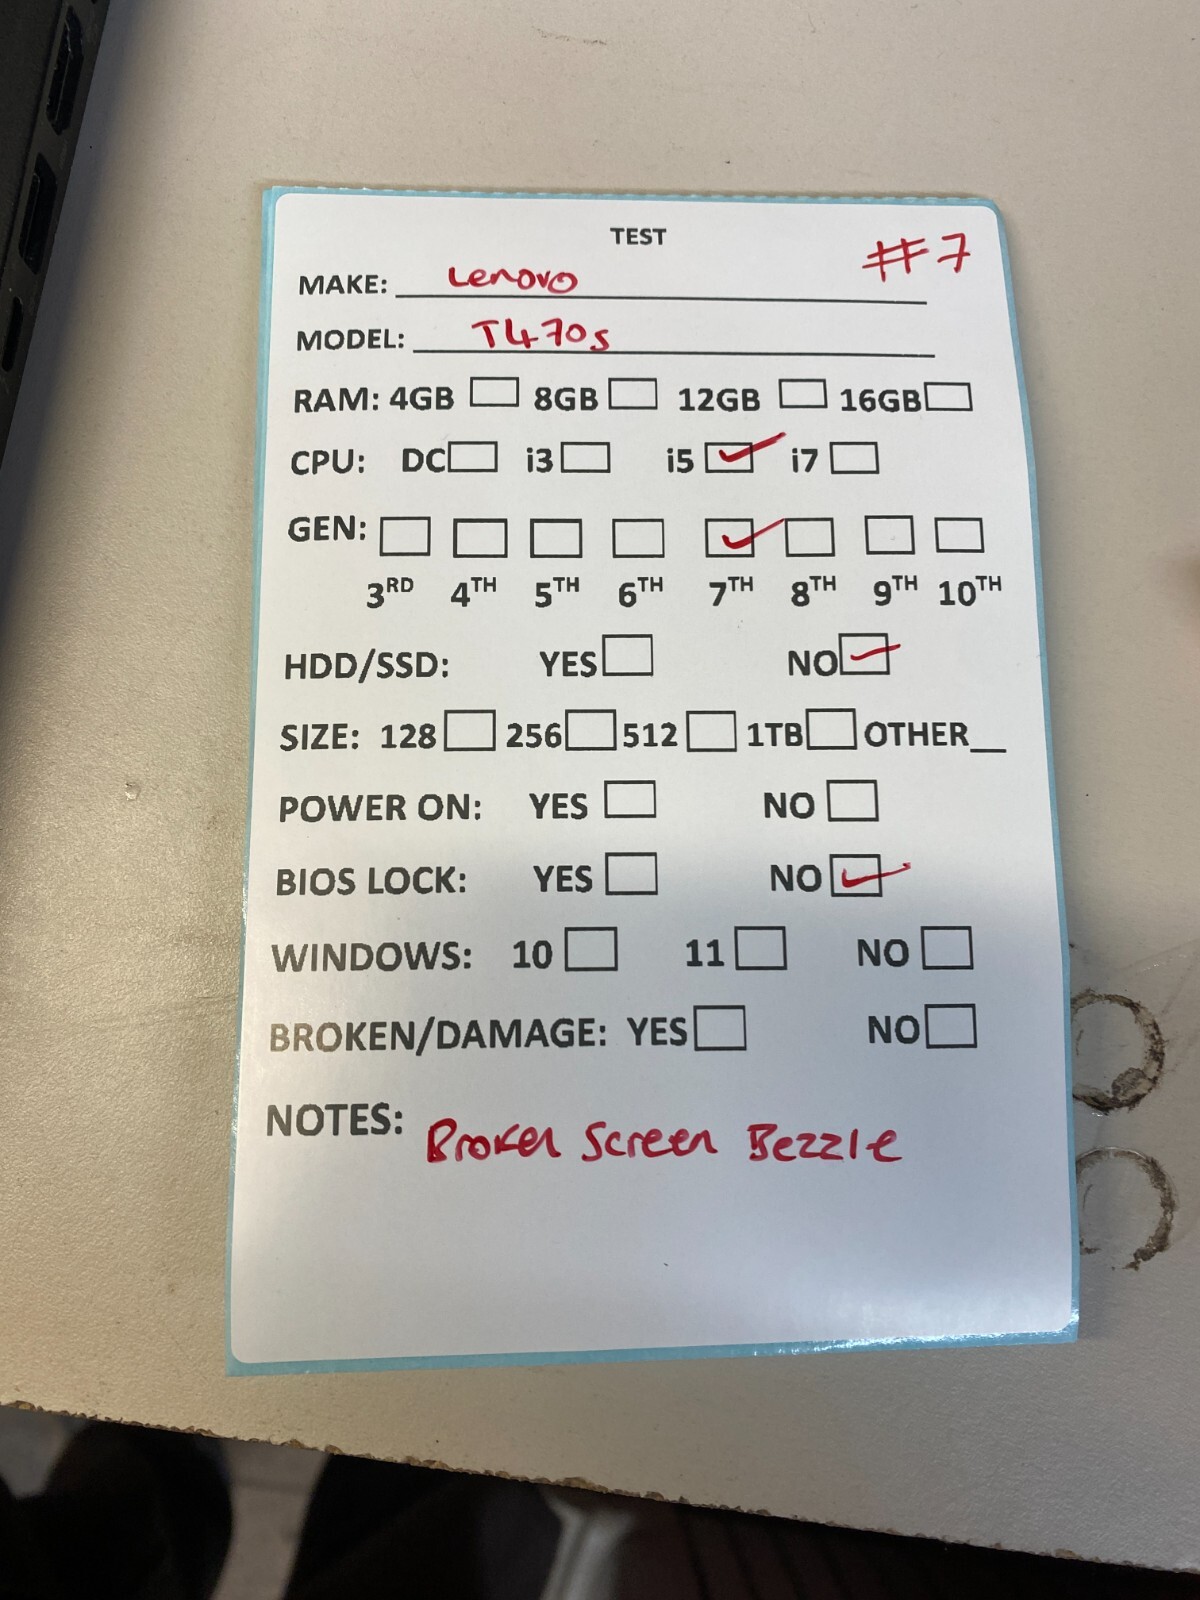 TEST
#7
MAKE: Lenovo
MODEL: T470s
RAM: 4GB 8GB 12GB 16GB
CPU: DC i3 i5 ✓ i7
GEN: ✓
3RD 4TH 5TH 6TH 7TH 8TH 9TH 10TH
HDD/SSD: YES NO ✓
SIZE: 128 256 512 1TB OTHER__
POWER ON: YES NO
BIOS LOCK: YES NO ✓
WINDOWS: 10 11 NO
BROKEN/DAMAGE: YES NO
NOTES: Broken Screen Bezzle